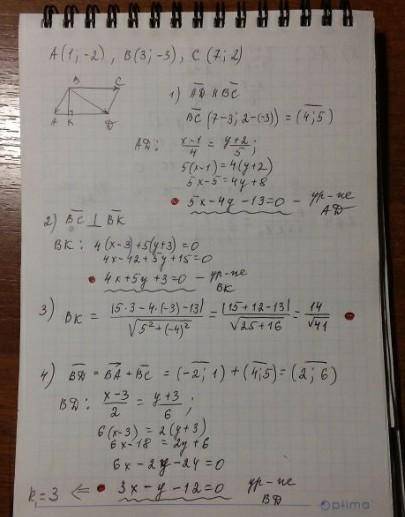 A(1;-2), B(3;-3), C(7;2)
B C
A K D
1) AD ∥ BC
BC (7-3; 2-(-3)) = (4;5)
AD: (x-1)/4 = (y+2)/5;
5(x-1)=4(y+2)
5x-5=4y+8
5x-4y-13=0 - ур-ие AD
2) BC ⊥ BK
BK: 4(x-3)+5(y+3)=0
4x-12+5y+15=0
4x+5y+3=0 - ур-ие BK
3) BK = |5·3-4·(-3)-13|/√(5²+(-4)²) = |15+12-13|/√(25+16) = 14/√41
4) BD = BA + BC = (-2;1) + (4;5) = (2;6)
BD: (x-3)/2 = (y+3)/6;
6(x-3)=2(y+3)
6x-18=2y+6
6x-2y-24=0
k=3 ⇐ 3x-y-12=0 ур-ие BD
Optima